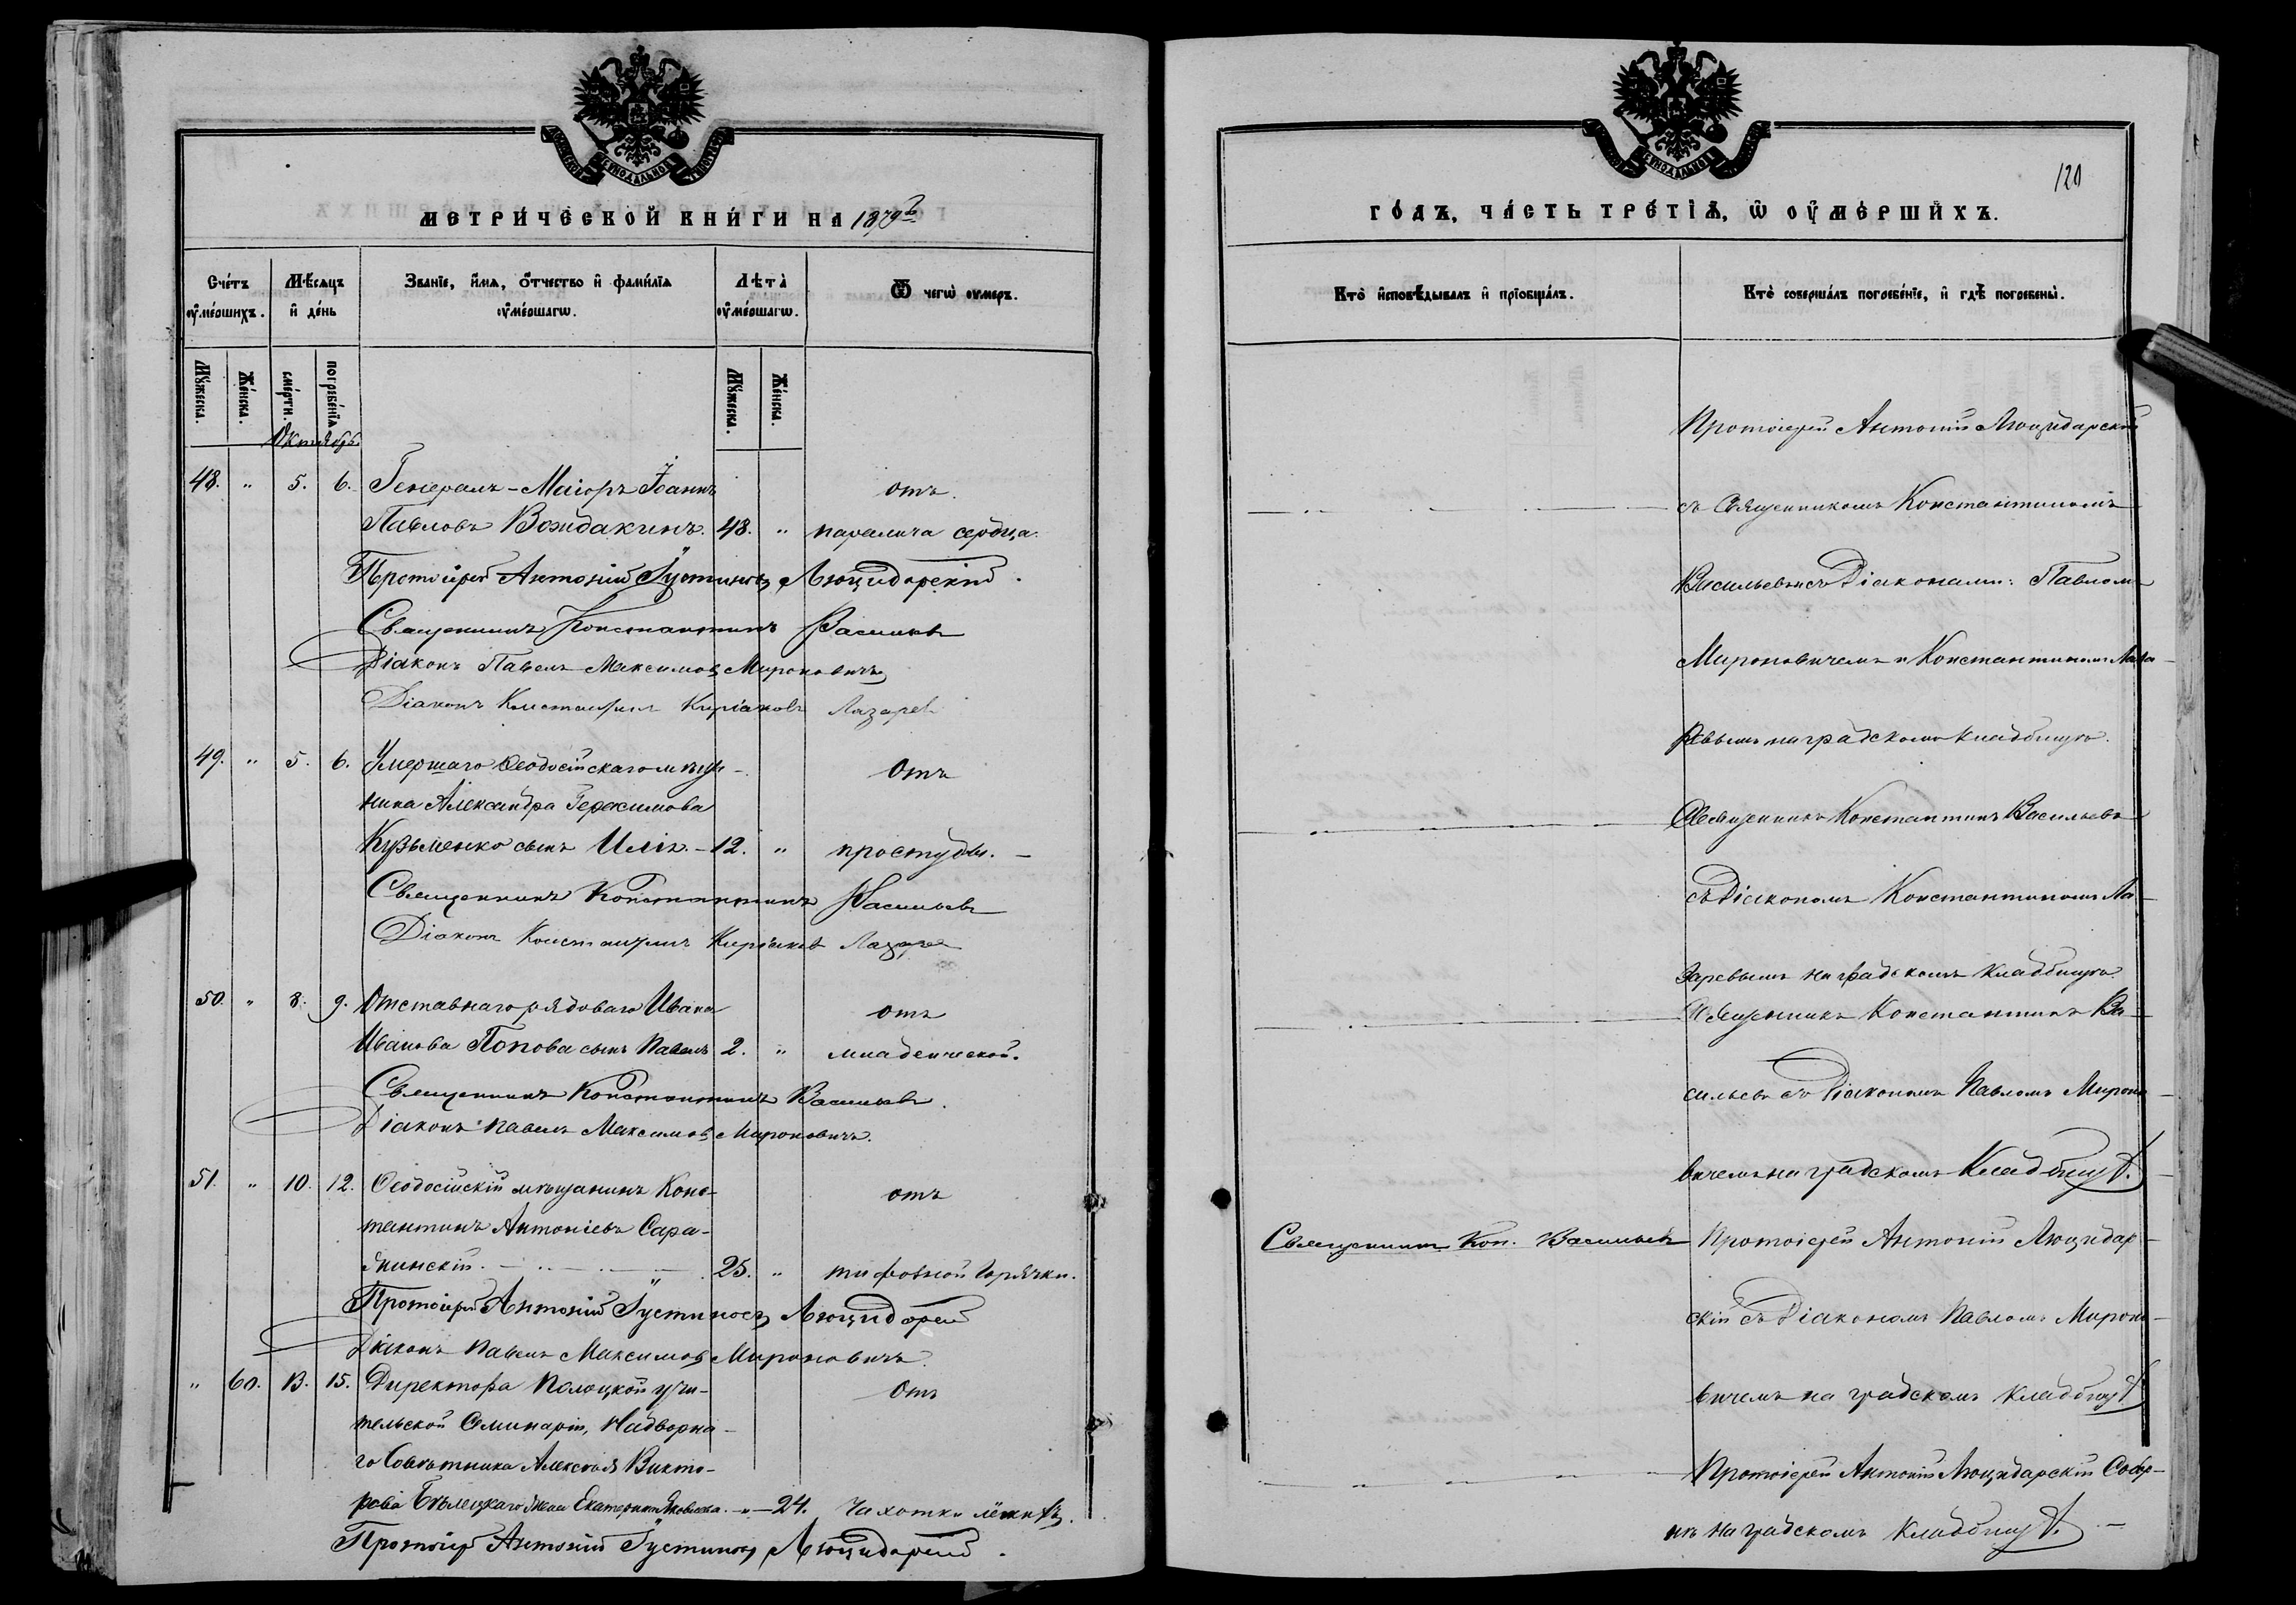 МЕТРИ́ЧЕСКОЙ КНИ́ГИ НА 1879й
Сче́тъ ᲂу҆ме́ршихъ.
Мѣ́сяцъ и҆ де́нь
Зва́нїе, и҆́мѧ, ѻ҆́тчество и҆ фами́лїѧ ᲂу҆ме́ршагѡ.
Лѣ́та ᲂу҆ме́ршагѡ.
Ѿ чегѡ̀ ᲂу҆́меръ.
Мꙋ́жеска.
Же́нска.
сме́рти.
погребе́нїѧ
Мꙋ́жеска.
Же́нска.
Октябрь
48. " 5. 6. Генералъ-Маіоръ Іоаннъ отъ
Павловъ Вождакинъ. 48. " паралича сердца.
Протоіерей Антоній Іустиновъ Люцидарскій.
Священникъ Константинъ Васильевъ
Діаконъ Павелъ Максимовъ Мироновичъ
Діаконъ Константинъ Киріаковъ Лазаревъ
49. " 5. 6. Умершаго Ѳеодосійскаго мѣща- отъ
нина Александра Герасимова
Кузьменко сынъ Илія. - 12. " простуды. -
Священникъ Константинъ Васильевъ
Діаконъ Константинъ Киріаковъ Лазарев
50. " 8. 9. Отставнаго рядоваго Ивана отъ
Иванова Попова сынъ Павелъ 2. " младенческой.
Священникъ Константинъ Васильевъ.
Діаконъ Павелъ Максимовъ Мироновичъ.
51. " 10. 12. Ѳеодосійскій мѣщанинъ Конс- отъ
тантинъ Антоніевъ Сара-
25. " тифозной горячки.
Протоіерей Антоній Іустиновъ Люцидарскій
Діаконъ Павелъ Максимовъ Мироновичъ.
" 60. 13. 15. Директора Полоцкой учи- отъ
тельской Семинаріи, Надворна-
го Совѣтника Алексѣя Викто-
рова Бѣлецкаго жена Екатерина Яковлева. - " - 24. Чахотки лёгкихъ.
Протоіерей Антоній Іустиновъ Люцидарскій.
120
ГО́ДЪ, ЧА́СТЬ ТРЕ́ТЇѦ, Ѡ҆ ОУ҆МЕ́РШИХЪ.
Кто̀ и҆сповѣ́дывалъ и҆ прїѡбща́лъ.
Кто̀ соверша́лъ погребе́нїе, и҆ гдѣ̀ погребены̀.
Протоіерей Антоній Люцидарскій
съ Священникомъ Константиномъ
Васильевымъ съ Діаконами: Павломъ
Мироновичемъ и Константиномъ Лаза-
ревымъ на градскомъ кладбищѣ.
Священникъ Константинъ Васильевъ
съ Діакономъ Константиномъ Ла-
заревымъ на градскомъ кладбищѣ.
Священникъ Константинъ Ва-
сильевъ съ Діакономъ Павломъ Мироно-
вичемъ на градскомъ Кладбищѣ.
Священникъ Кон. Васильевъ Протоіерей Антоній Люцидар-
скій съ Діакономъ Павломъ Мироно-
вичемъ на градскомъ кладбищѣ
Протоіерей Антоній Люцидарскій Собор-
нѣ на градскомъ Кладбищѣ. -